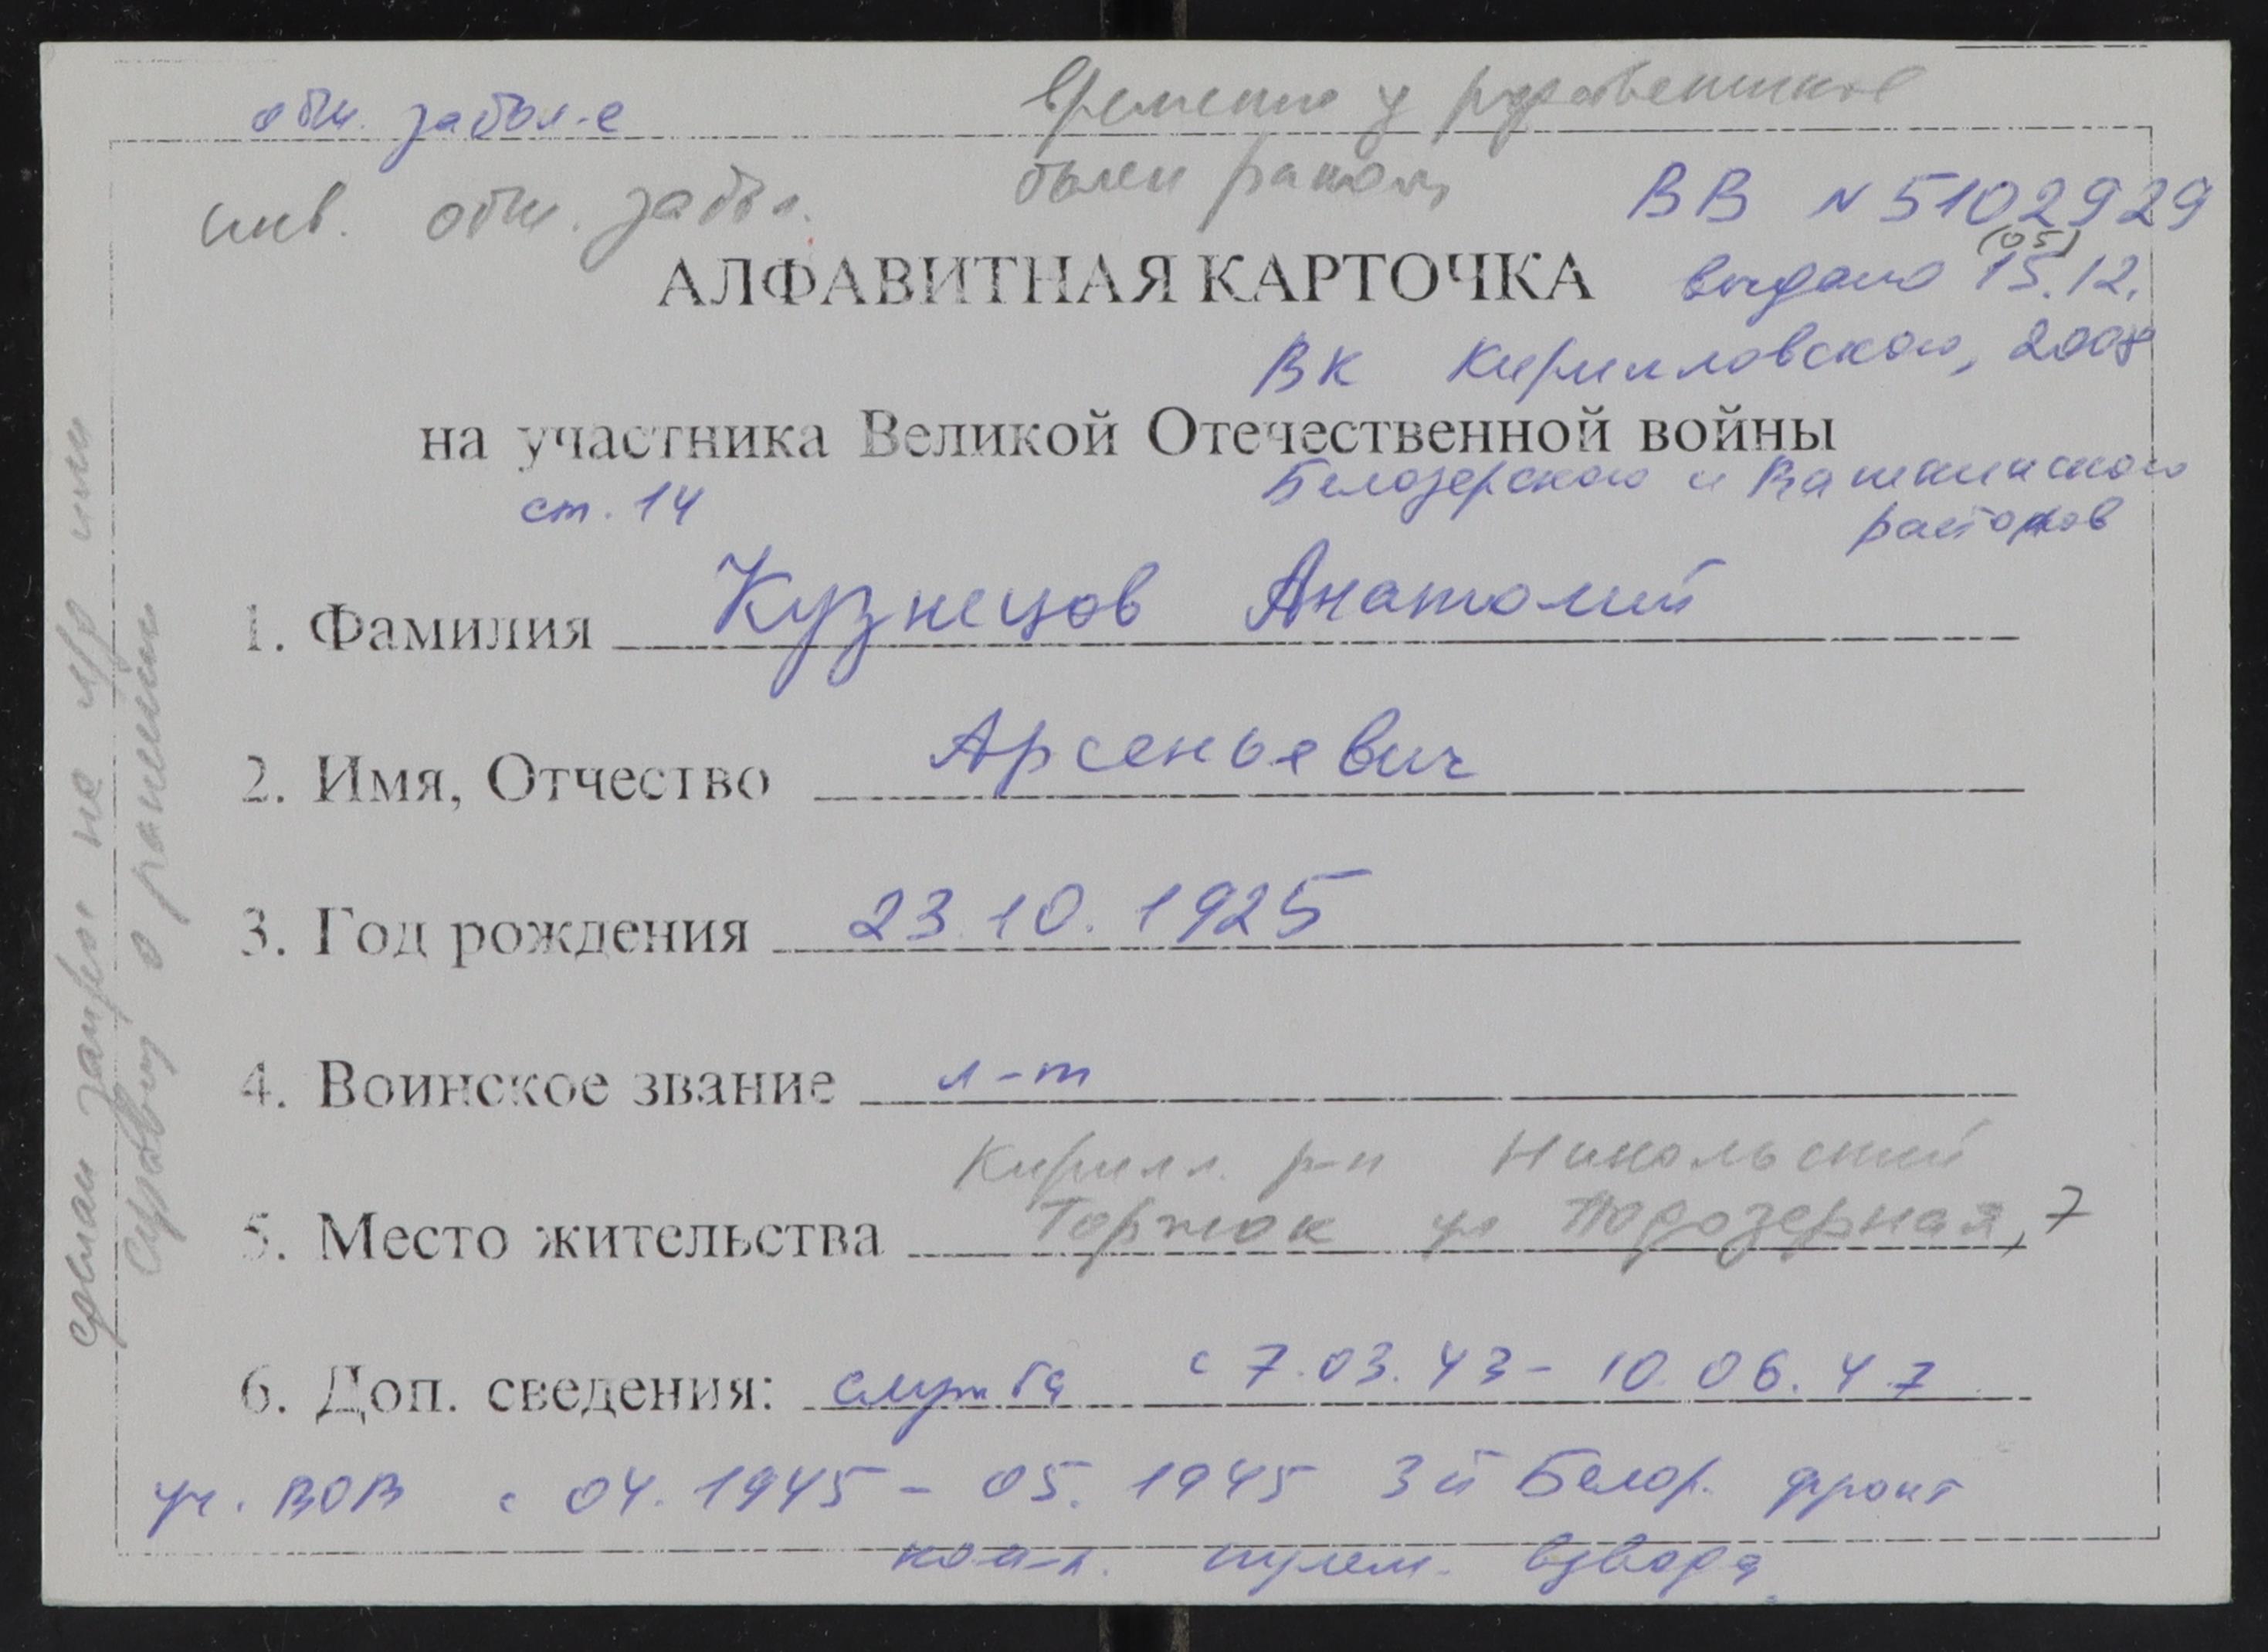 общ. забол-е
Временно у родственников
был ранен
инв. общ. забол.
ВВ № 5102929
(05)
АЛФАВИТНАЯ КАРТОЧКА
выдано 15.12.
ВК Кирилловского, 2008
на участника Великой Отечественной войны
ст. 14
Белозерского и Вашкинского
районов
1. Фамилия Кузнецов Анатолий
2. Имя, Отчество Арсеньевич
3. Год рождения 23.10.1925
4. Воинское звание л-т
Кирилл. р-н Никольский
5. Место жительства Торжок ул Подозерная, 7
6. Доп. сведения: служба с 7.03.43 - 10.06.47
уч. ВОВ с 04.1945 - 05.1945 3й Белор. фронт
ком-р. пулем. взвода
сделан запрос на
справку о ранении